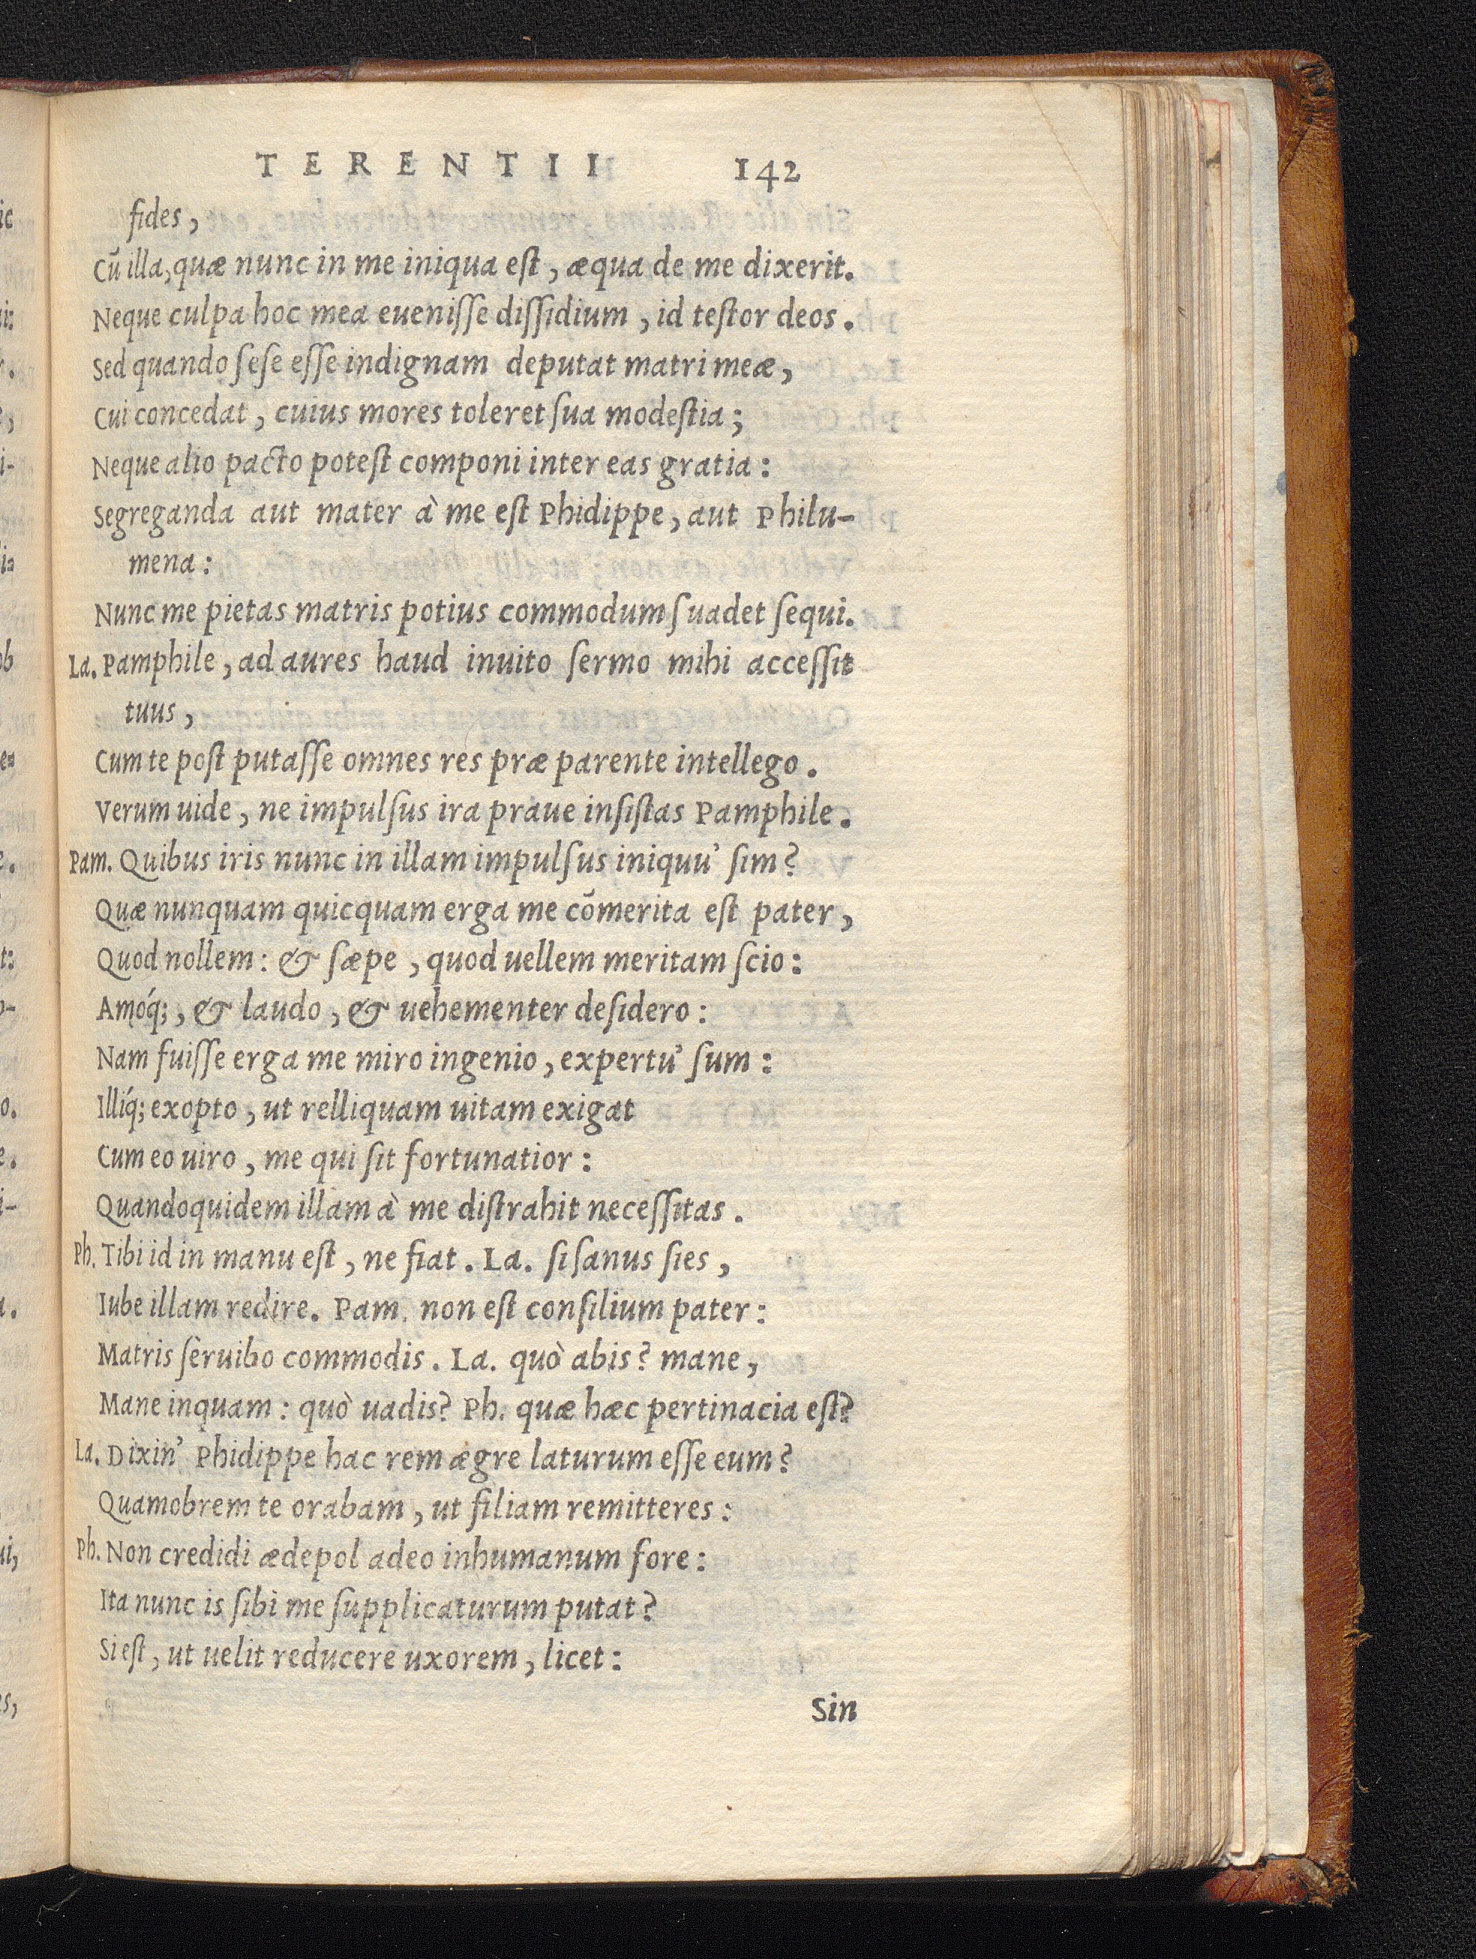 TERENTII 142
fides,
Cū illa, quæ nunc in me iniqua eſt, æqua de me dixerit.
Neque culpa hoc mea eueniſſe diſſidium, id teſtor deos.
Sed quando ſeſe eſſe indignam deputat matri meæ,
Cui concedat, cuius mores toleret ſua modeſtia;
Neque alio pacto poteſt componi inter eas gratia:
Segreganda aut mater à me eſt Phidippe, aut Philu-
mena:
Nunc me pietas matris potius commodum ſuadet ſequi.
La. Pamphile, ad aures haud inuito ſermo mihi acceſſit
tuus,
Cum te poſt putaſſe omnes res præ parente intellego.
Verum uide, ne impulſus ira praue inſiſtas Pamphile.
Pam. Quibus iris nunc in illam impulſus iniquu' ſim?
Quæ nunquam quicquam erga me cōmerita eſt pater,
Quod nollem: & ſæpe, quod uellem meritam ſcio:
Amóq;, & laudo, & uehementer deſidero:
Nam fuiſſe erga me miro ingenio, expertu' ſum:
Illíq; exopto, ut relliquam uitam exigat
Cum eo uiro, me qui ſit fortunatior:
Quandoquidem illam à me diſtrahit neceſſitas.
Ph. Tibi id in manu eſt, ne fiat. La. ſi ſanus ſies,
Iube illam redire. Pam. non eſt conſilium pater:
Matris ſeruibo commodis. La. quò abis? mane,
Mane inquam: quò uadis? Ph. quæ hæc pertinacia eſt?
La. Dixin' Phidippe hac rem ægre laturum eſſe eum?
Quamobrem te orabam, ut filiam remitteres:
Ph. Non credidi ædepol adeo inhumanum fore:
Ita nunc is ſibi me ſupplicaturum putat?
Si eſt, ut uelit reducere uxorem, licet:
Sin